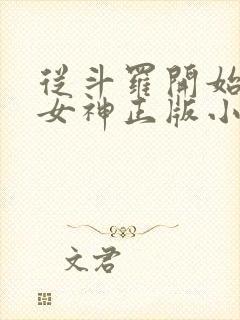 從斗羅開始
女神正版小
文君